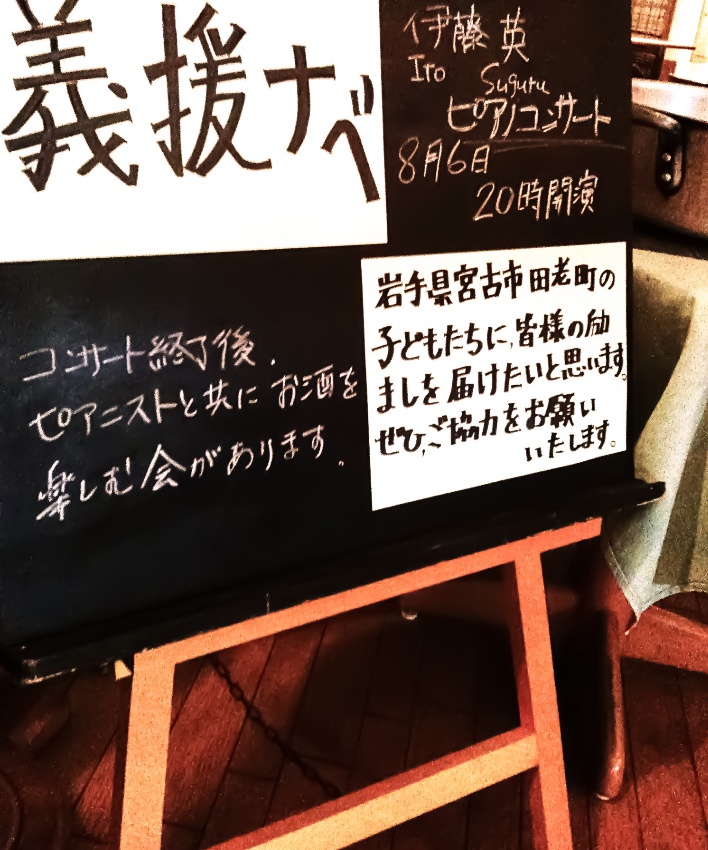 義援ナベ
伊藤 英
Ito Suguru
ピアノコンサート
8月6日
20時開演
コンサート終了後、
ピアニストと共に お酒を
楽しむ会があります。
岩手県宮古市田老町の
子どもたちに、皆様の励
ましを届けたいと思います。
ぜひ、ご協力をお願い
いたします。